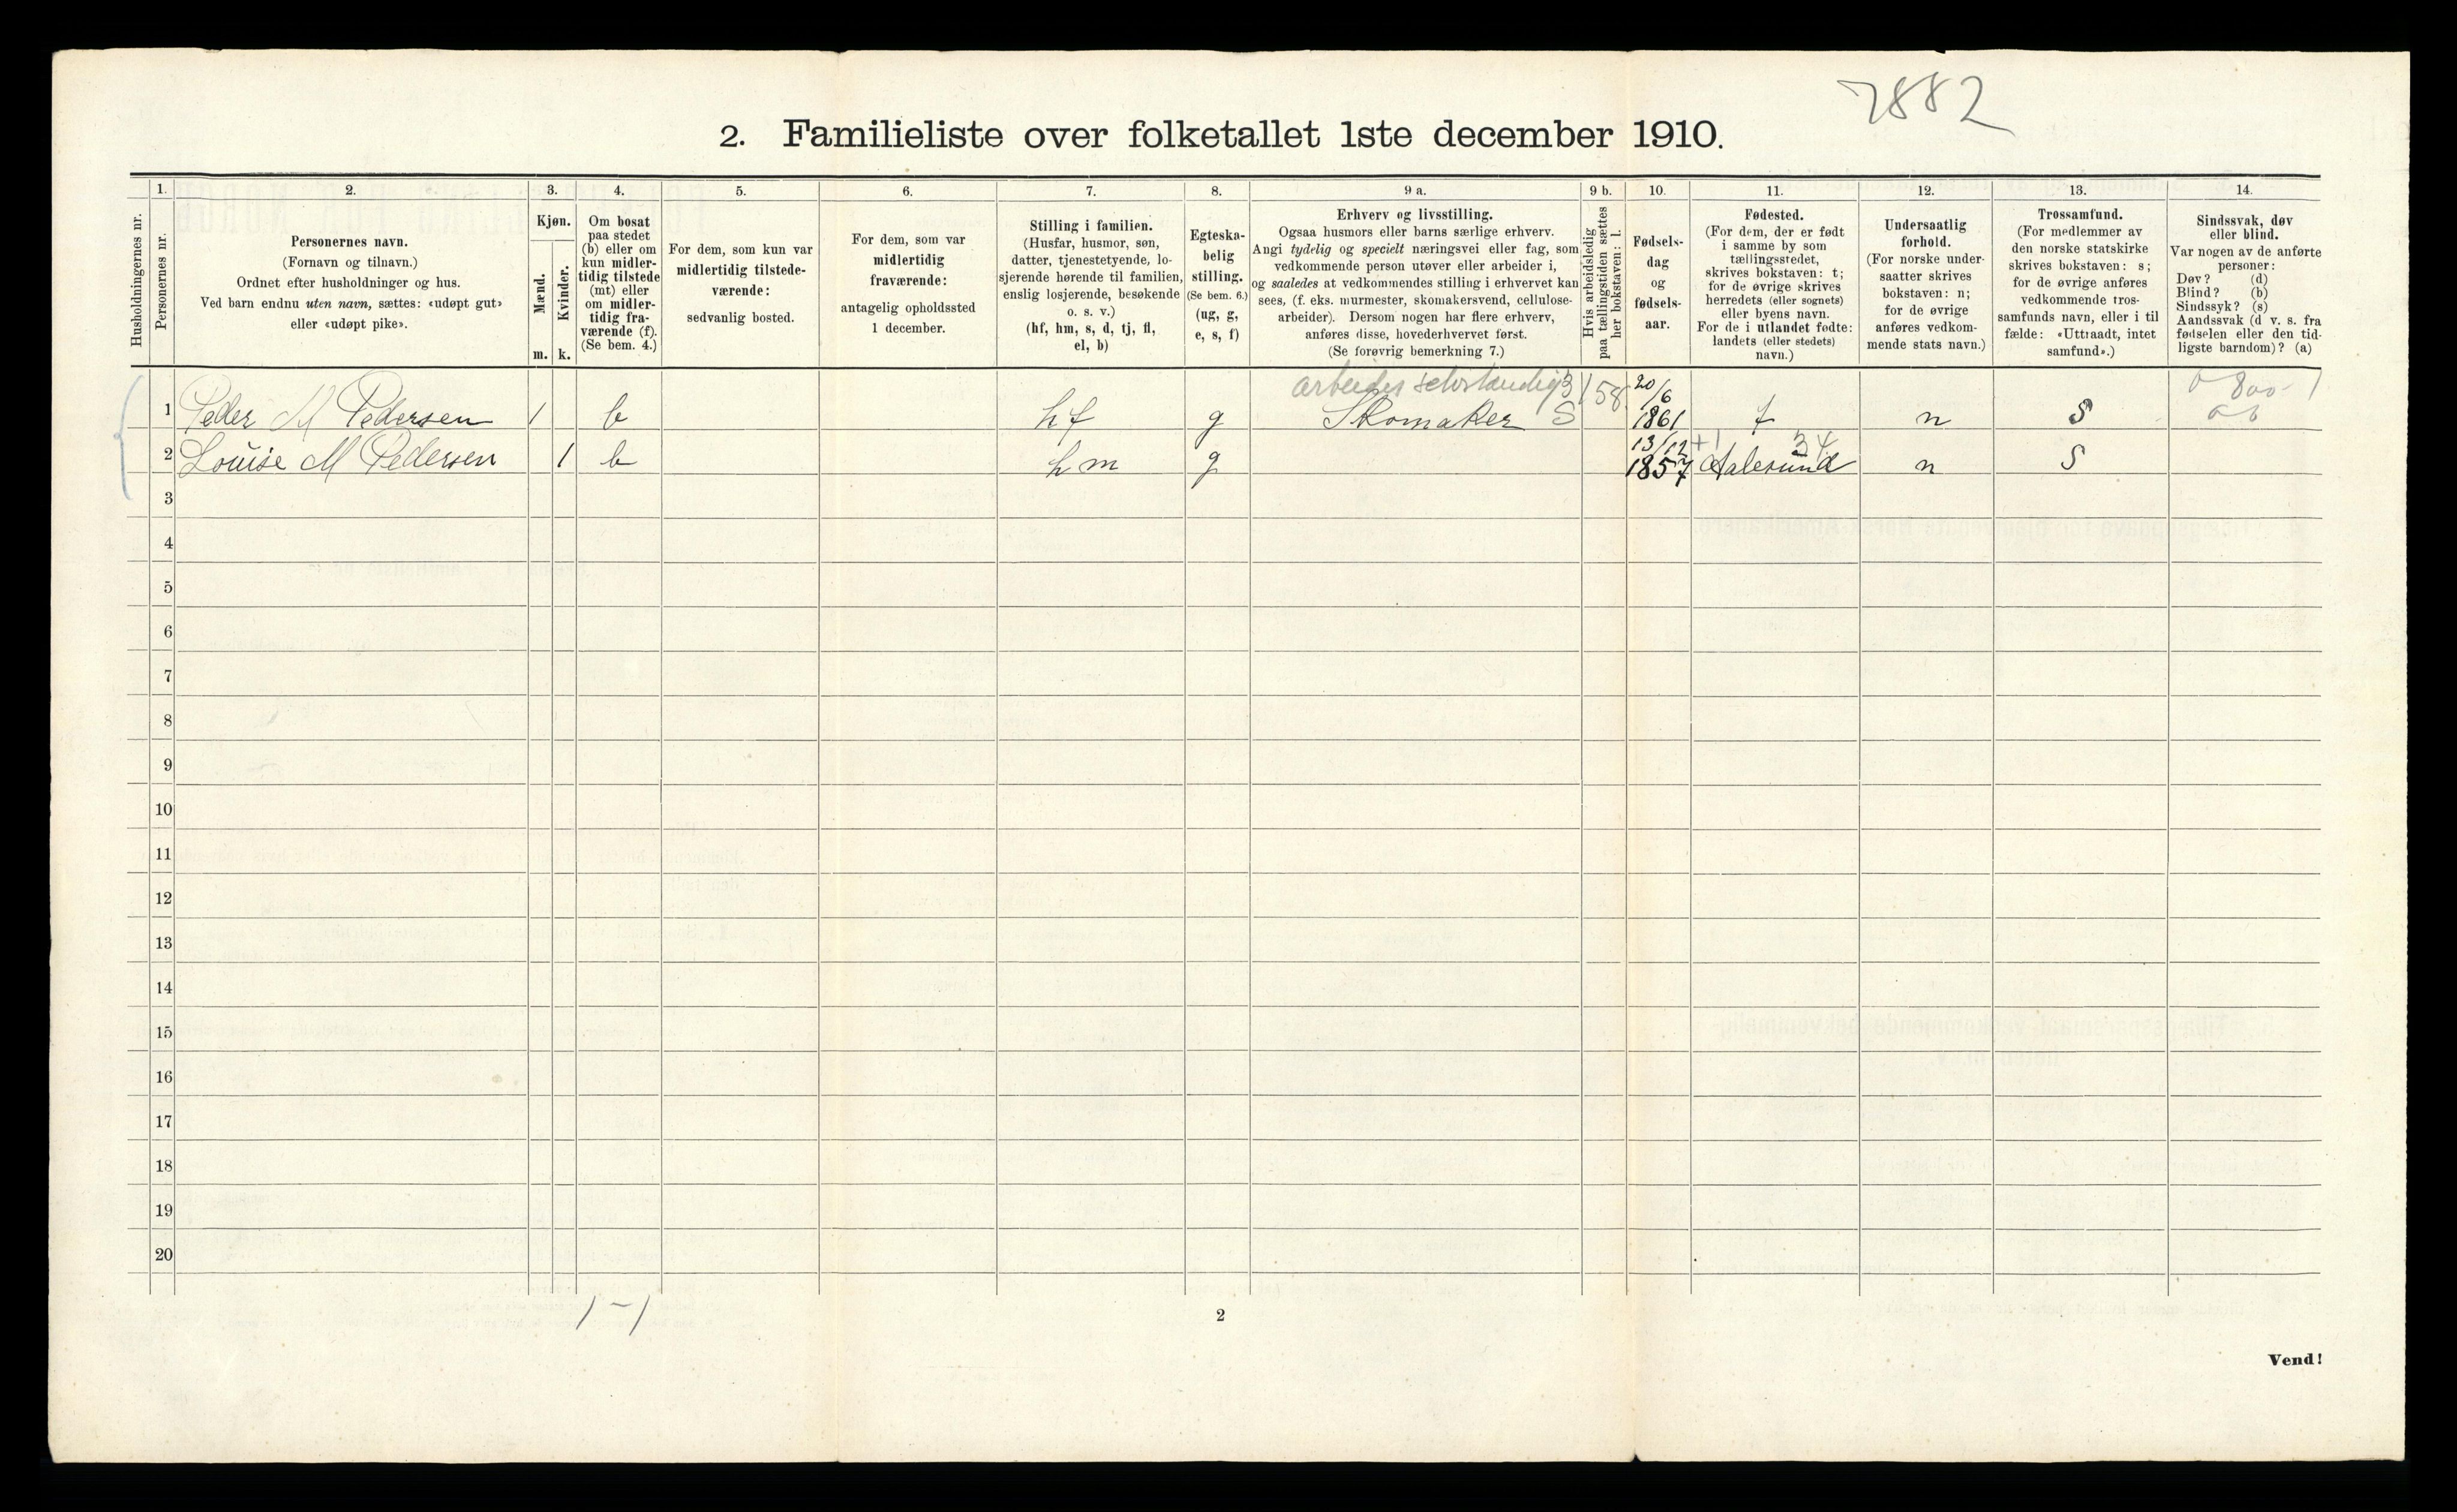 7882
2. Familieliste over folketallet 1ste december 1910.
Husholdningernes nr.
1.
Personernes nr.
2.
Personernes navn.
(Fornavn og tilnavn.)
Ordnet efter husholdninger og hus.
Ved barn endnu uten navn, sættes: «udøpt gut»
eller «udøpt pike».
3.
Kjøn.
Mænd.
Kvinder.
m.
k.
4.
Om bosat
paa stedet
(b) eller om
kun midler-
tidig tilstede
(mt) eller
om midler-
tidig fra-
værende (f).
(Se bem. 4.)
5.
For dem, som kun var
midlertidig tilstede-
værende:
sedvanlig bosted.
6.
For dem, som var
midlertidig
fraværende:
antagelig opholdssted
1 december.
7.
Stilling i familien.
(Husfar, husmor, søn,
datter, tjenestetyende, lo-
sjerende hørende til familien,
enslig losjerende, besøkende
o. s. v.)
(hf, hm, s, d, tj, fl,
el, b)
8.
Egteska-
belig
stilling.
(Se bem. 6.)
(ug, g,
e, s, f)
9 a.
Erhverv og livsstilling.
Ogsaa husmors eller barns særlige erhverv.
Angi tydelig og specielt næringsvei eller fag, som
vedkommende person utøver eller arbeider i,
og saaledes at vedkommendes stilling i erhvervet kan
sees, (f. eks. murmester, skomakersvend, cellulose-
arbeider). Dersom nogen har flere erhverv,
anføres disse, hovederhvervet først.
(Se forøvrig bemerkning 7.)
9 b.
Hvis arbeidsledig
paa tællingstiden sættes
her bokstaven: l.
10.
Fødsels-
dag
og
fødsels-
aar.
11.
Fødested.
(For dem, der er født
i samme by som
tællingsstedet,
skrives bokstaven: t;
for de øvrige skrives
herredets (eller sognets)
eller byens navn.
For de i utlandet fødte:
landets (eller stedets)
navn.)
12.
Undersaatlig
forhold.
(For norske under-
saatter skrives
bokstaven: n;
for de øvrige
anføres vedkom-
mende stats navn.)
13.
Trossamfund.
(For medlemmer av
den norske statskirke
skrives bokstaven: s;
for de øvrige anføres
vedkommende tros-
samfunds navn, eller i til
fælde: «Uttraadt, intet
samfund».)
14.
Sindssvak, døv
eller blind.
Var nogen av de anførte
personer:
Døv? (d)
Blind? (b)
Sindssyk? (s)
Aandssvak (d v. s. fra
fødselen eller den tid-
ligste barndom)? (a)
arbeider selvstændig 3/58 20/6 0 800- 1
1 Peder M Pedersen 1 b hf g Skomaker S 1861 t n S
13/12 +1 34
2 Louise M Pedersen 1 b hm g 1857 Aalesund n S
3
4
5
6
7
8
9
10
11
12
13
14
15
16
17
18
19
20
1 - 1
2
Vend!